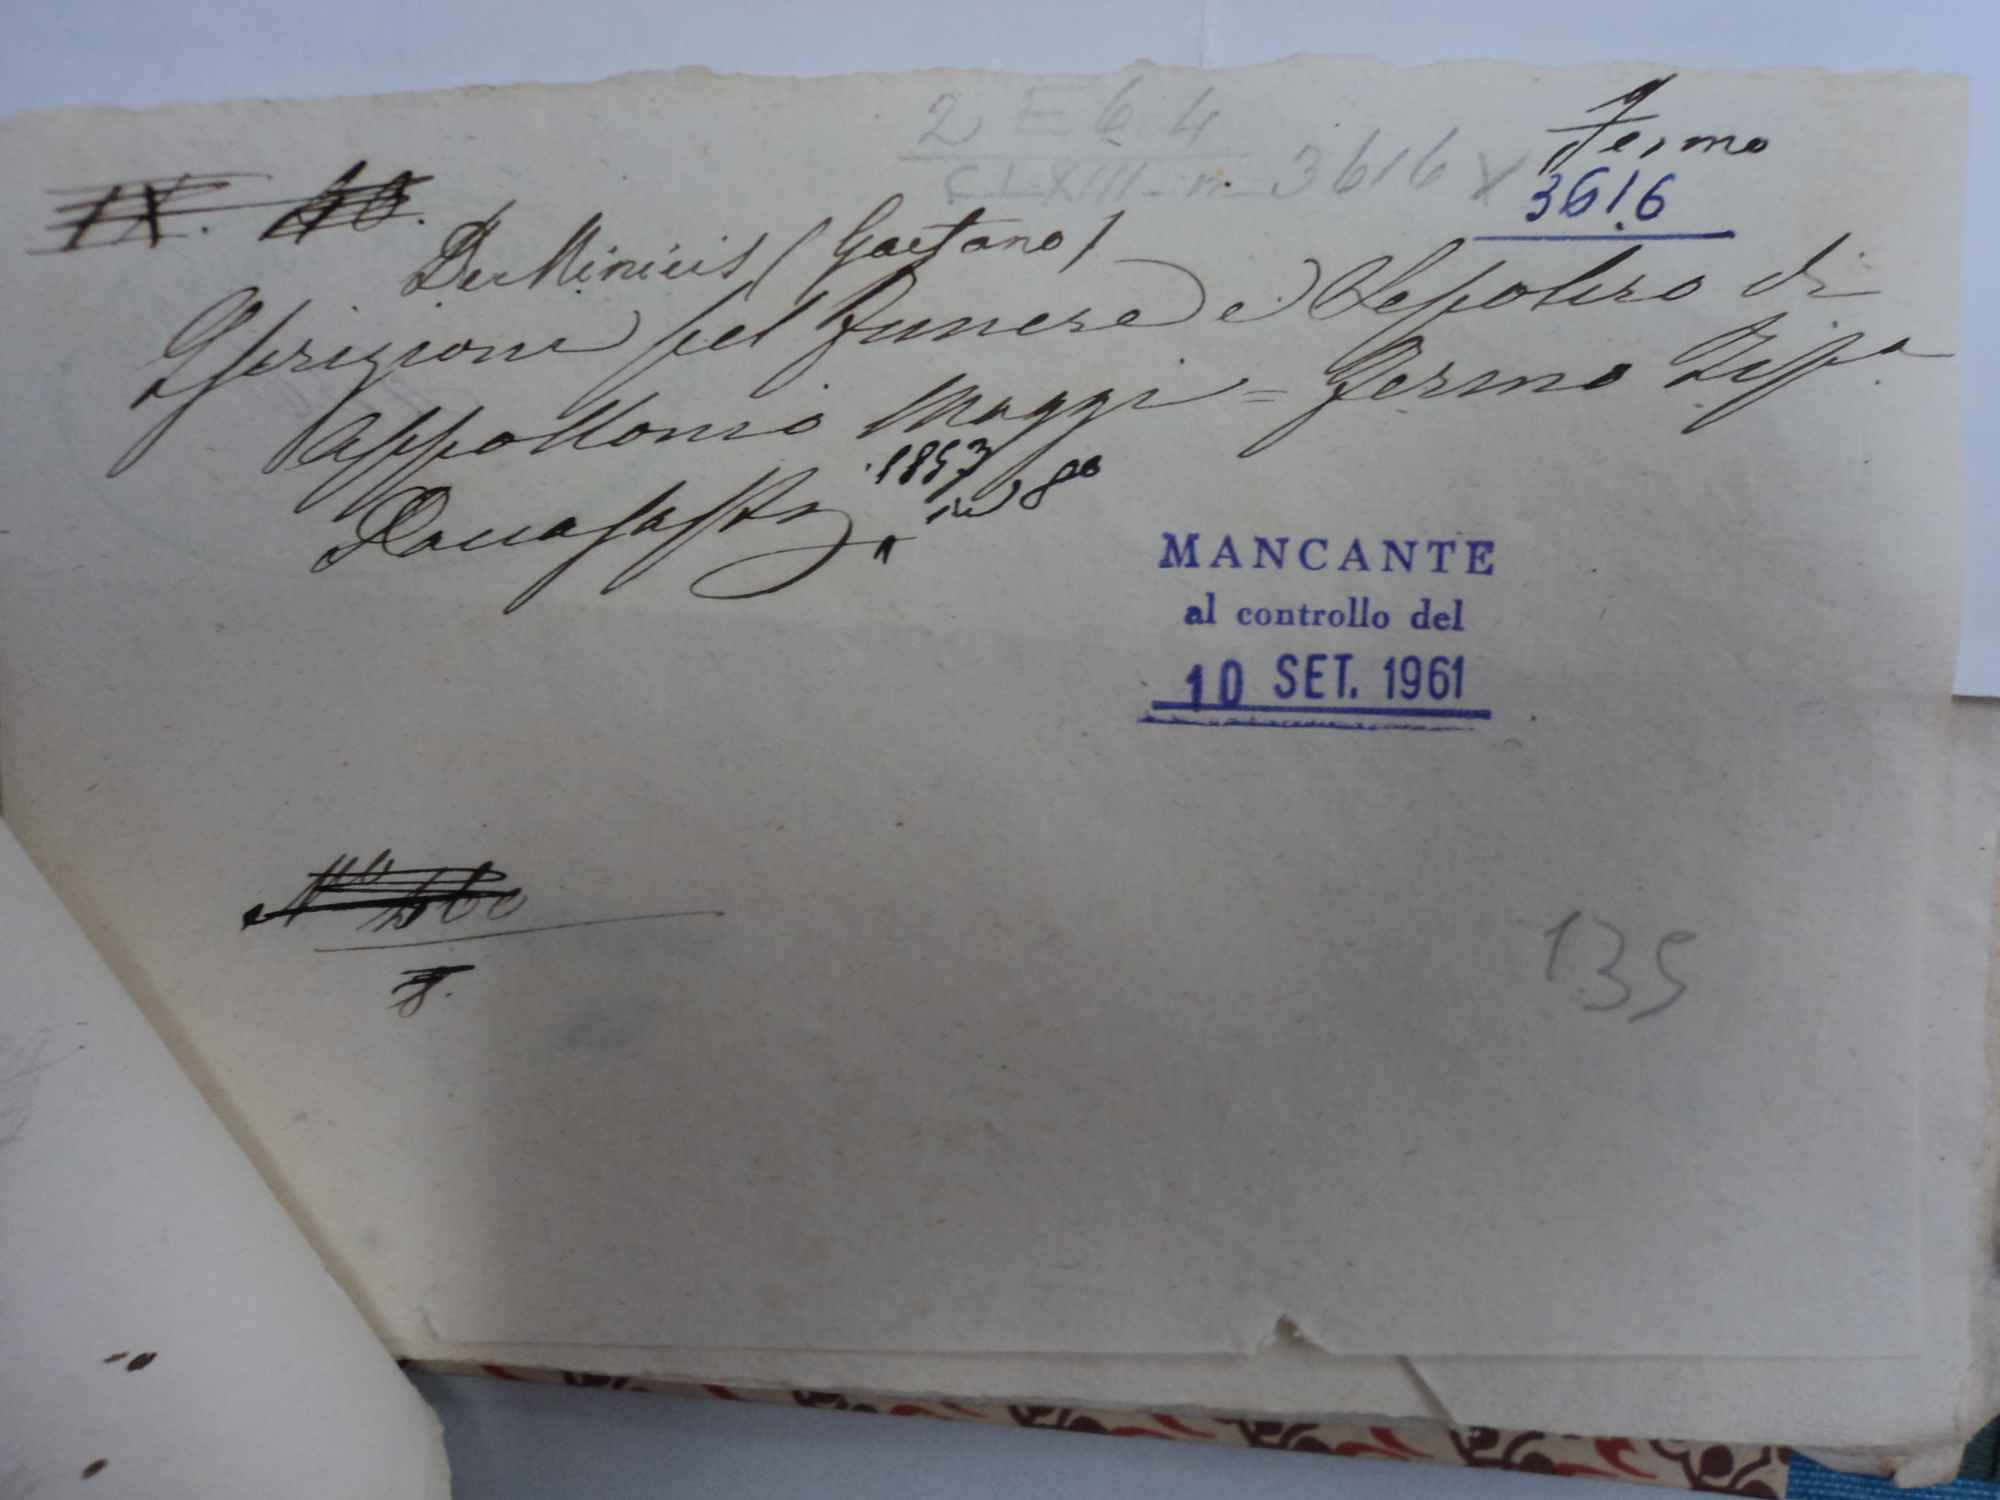 2 E 6.4
CLXIII - n - 3616 x
Fermo
3616
IX. 
De Minicis (Gaetano)
Iscrizioni pel funere e Sepolcro di
Appollonio Maggi = Fermo Tip.a
Paccasassi
1857
in 8o
MANCANTE
al controllo del
10 SET. 1961
135